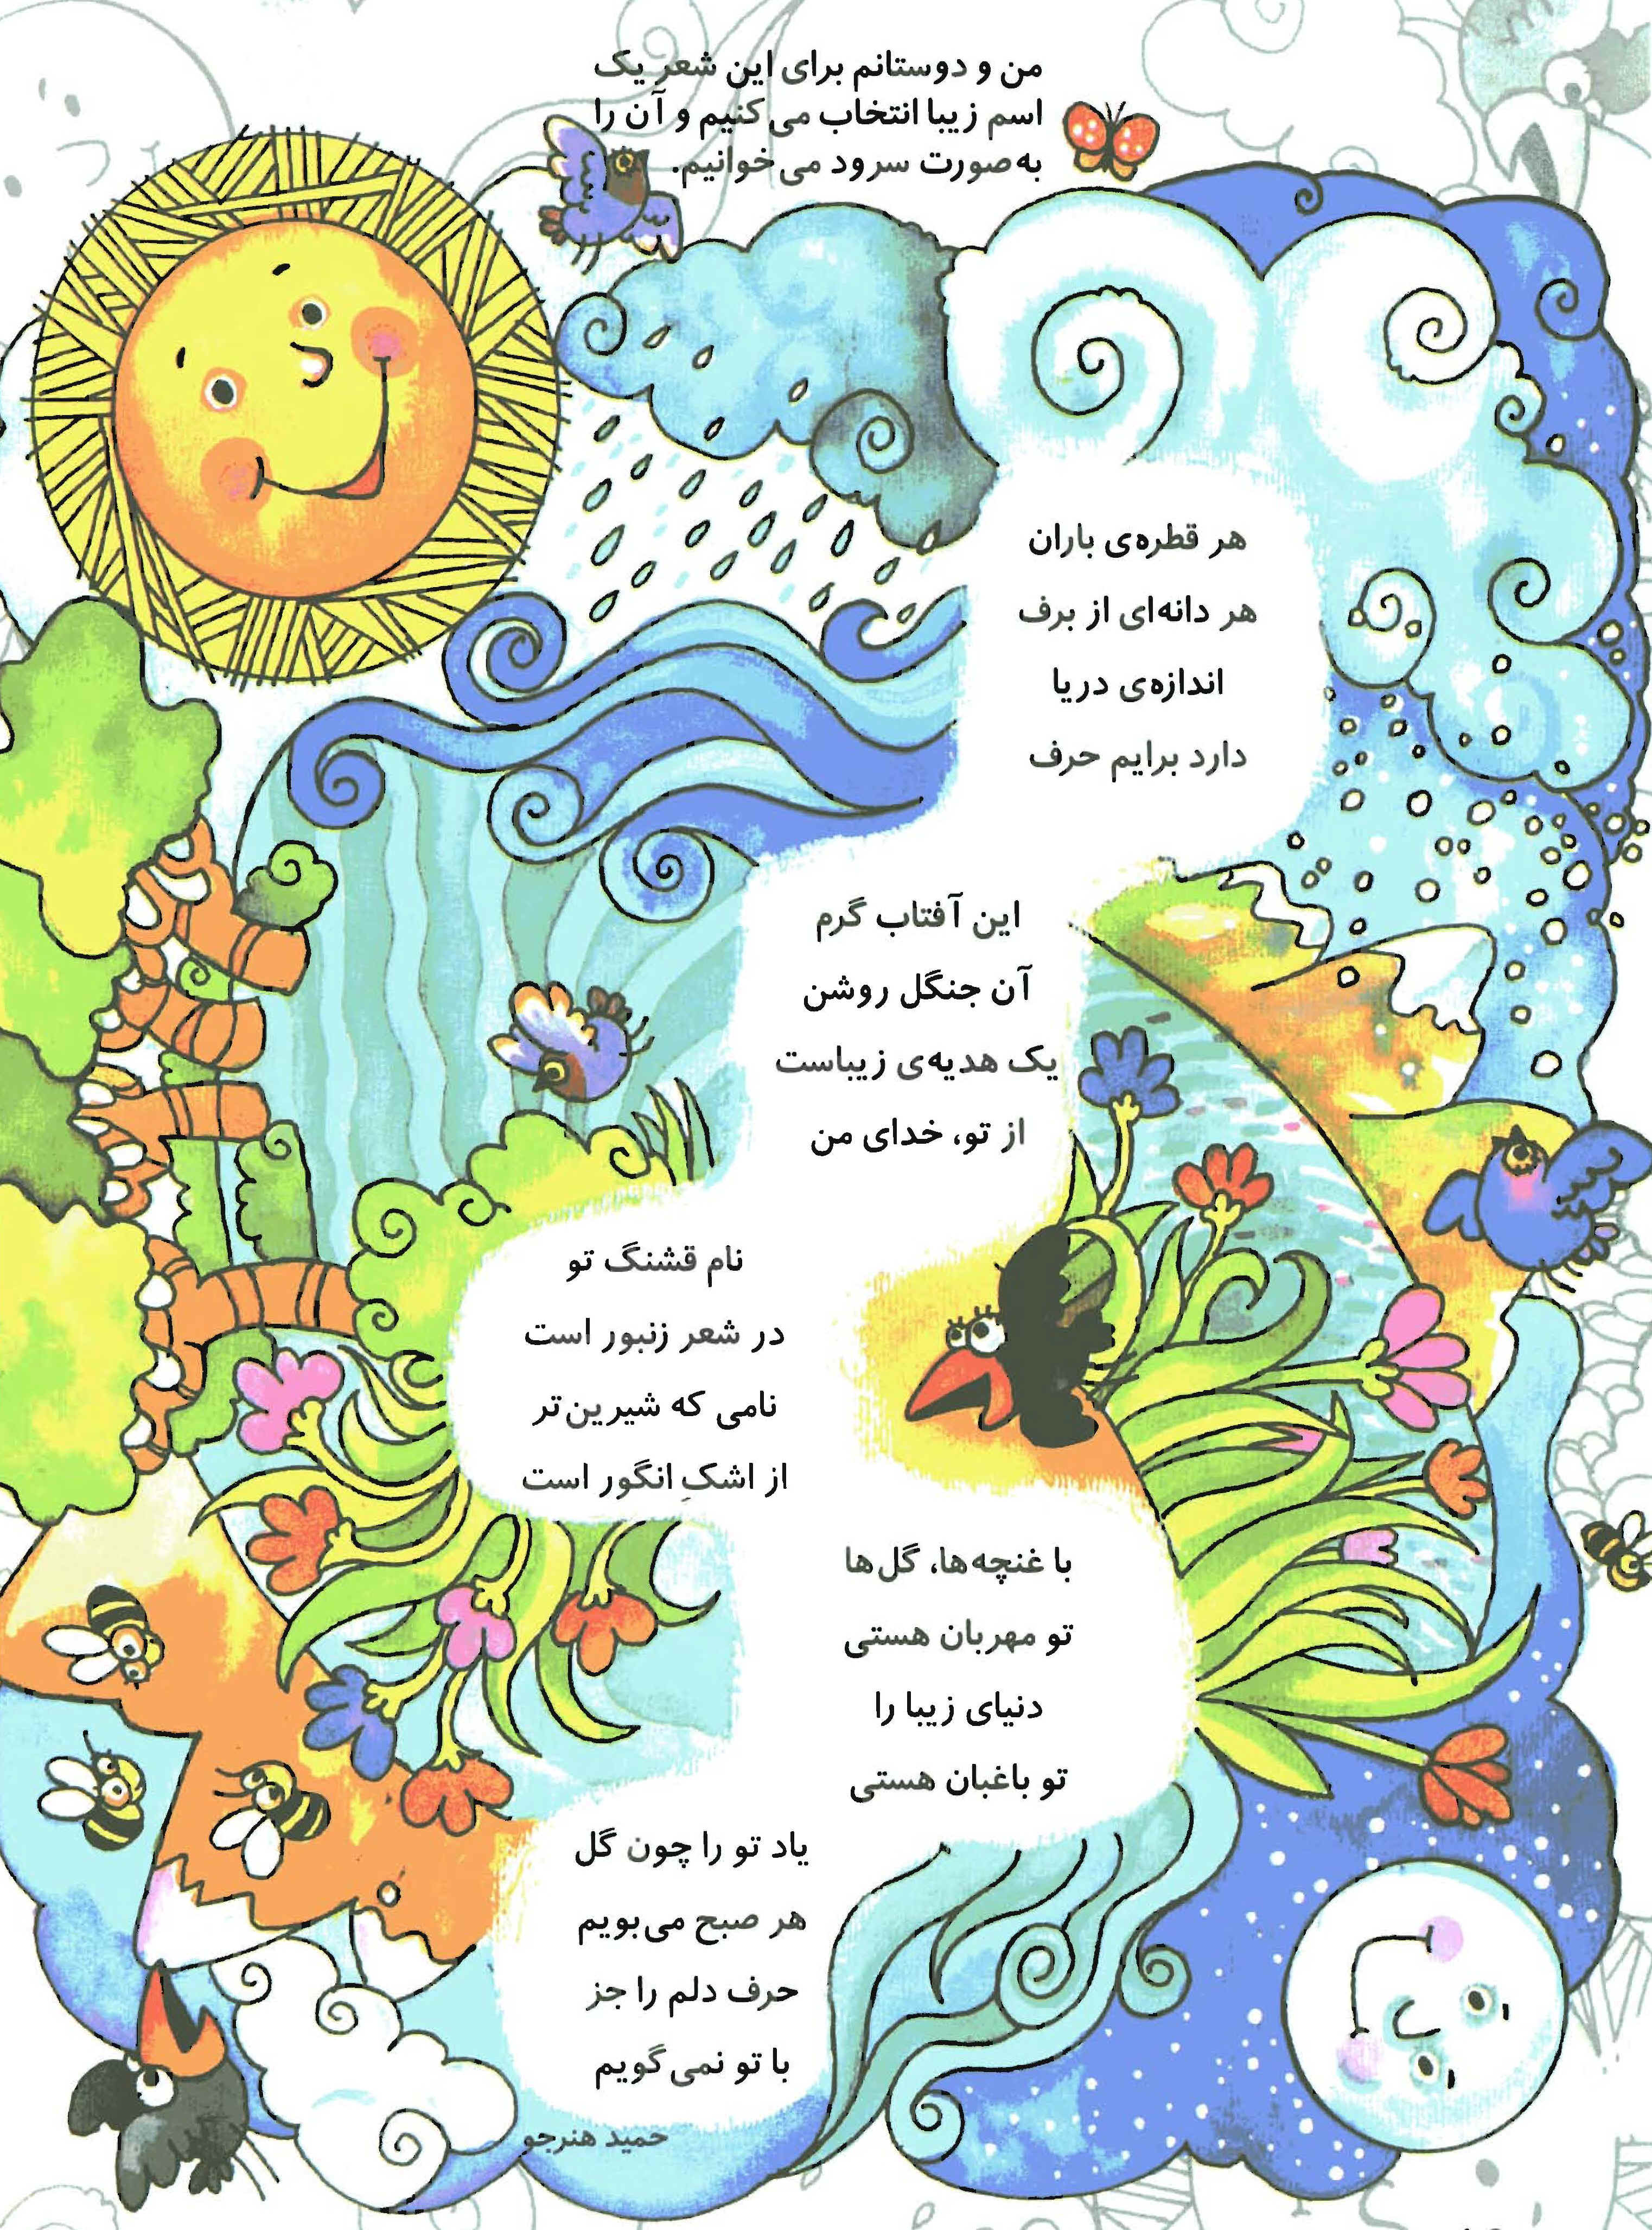 من و دوستانم برای این شعر یک
اسم زیبا انتخاب می‌کنیم و آن را
به‌صورت سرود می‌خوانیم.
هر قطره‌ی باران
هر دانه‌ای از برف
اندازه‌ی دریا
دارد برایم حرف
این آفتاب گرم
آن جنگل روشن
یک هدیه‌ی زیباست
از تو، خدای من
نام قشنگ تو
در شعر زنبور است
نامی که شیرین‌تر
از اشکِ انگور است
با غنچه‌ها، گل‌ها
تو مهربان هستی
دنیای زیبا را
تو باغبان هستی
یاد تو را چون گل
هر صبح می‌بویم
حرف دلم را جز
با تو نمی‌گویم
حمید هنرجو